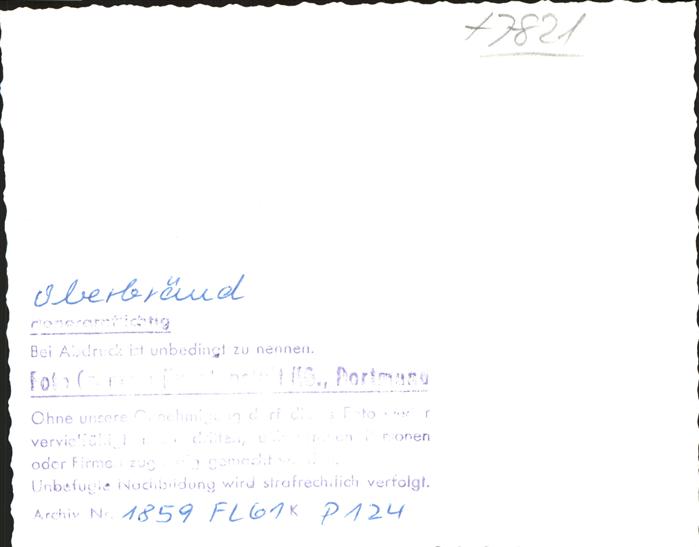 +7821
Oberbränd
Honorarpflichtig
Bei Abdruck ist unbedingt zu nennen.
Foto KG., Dortmund
Ohne unsere Genehmigung darf dieses Foto
vervielfältigt dritten, Personen
oder Firmen zugängig gemacht werden.
Unbefugte Nachbildung wird strafrechtlich verfolgt.
Archiv Nr. 1859 FL61K P124